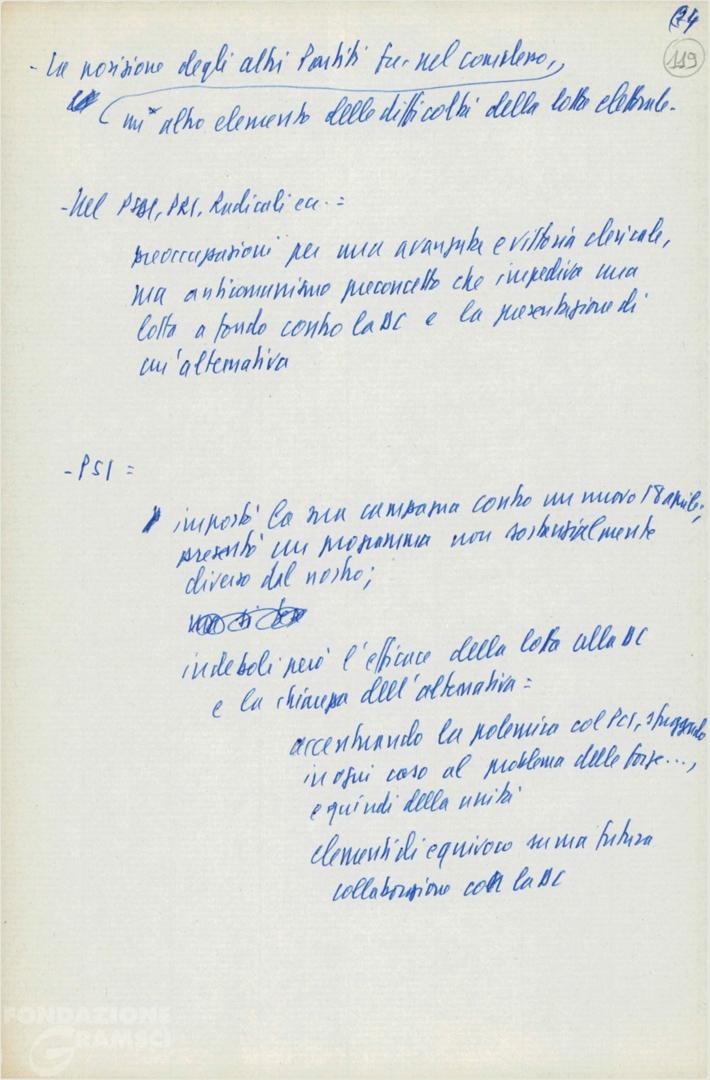 34
119
- La posizione degli altri Partiti fu, nel complesso,
un altro elemento delle difficoltà della lotta elettorale.
- Nel PSDI, PRI, Radicali ecc. =
preoccupazioni per una avanzata e vittoria clericale,
ma anticomunismo preconcetto che impediva una
lotta a fondo contro la DC e la presentazione di
un'alternativa
- PSI =
impostò la sua campagna contro un nuovo 18 aprile;
presentò un programma non sostanzialmente
diverso dal nostro;
indebolì però l'efficace della lotta alla DC
e la chiarezza dell'alternativa =
accentuando la polemica col PCI, sfuggendo
in ogni caso al problema delle forze...,
e quindi della unità
elementi di equivoco su una futura
collaborazione con la DC
FONDAZIONE
GRAMSCI